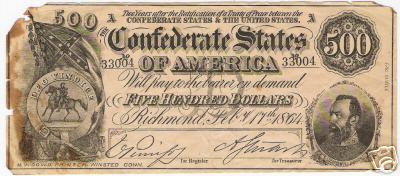 Two Years after the Ratification of a Treaty of Peace between the
CONFEDERATE STATES & THE UNITED STATES.
500 A A 500
THE Confederate States
33004 33004
OF AMERICA
Will pay to the bearer on demand
FIVE HUNDRED DOLLARS
Richmond, Feby 17th 1864
DEO VINDICE
for Register
for Treasurer
WINSTED CONN.